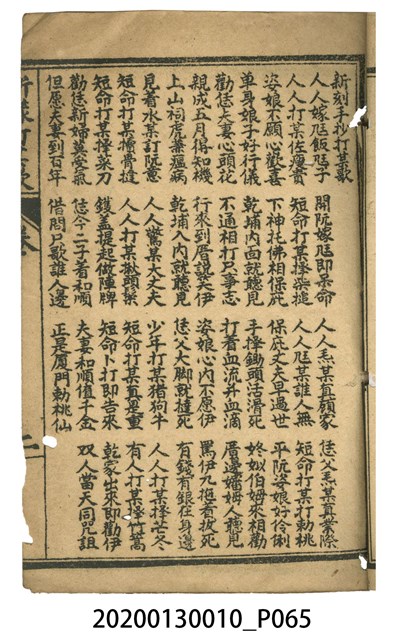 新刻手抄打某歌
人人嫁尫飯尫子 開阮嫁尫即呆命 人人焘某真顧家 恁父焘某真業際
人人打某佐瘦賞 短命打某擇柴搥 人人尫某誰人無 短命打某打勅桃
姿娘不願心歡喜 下神托佛相保庇 保庇丈夫早過世 平阮姿娘好伶俐
单身娘子好行儀 乾埔內面就聽見 手擇鋤頭活滑死 姈姒伯姆來相勸
勸恁夫妻心頭花 不通相打尺爭志 打着血流并血滴 厝邊嬸姆人聽見
親成五月得知機 行來到厝説夫伊 姿娘心內不愿伊 罵伊九挺着拔死
上山祠虎菓瘟病 乾埔入內就聽見 恁父大脚就撻死 有錢有銀在身邊
見着水某訂阮意 人人驚某大丈夫 少年打某猪狗牛 人人打某擇芒冬
短命打某擔骨挞 人人打某揪頭鬃 短命打某真是重 有人打某擇竹篙
短命打某擇菜刀 鑊盖提起做陣牌 短命卜打即告來 乾家出來即勸伊
勸恁新婦莫受氣 恁今二子着和順 夫妻和順值千金 双人當天同咒詛
但愿夫妻到百年 借問只歌誰人邊 正是厦門勅桃仙
二
20200130010_P065